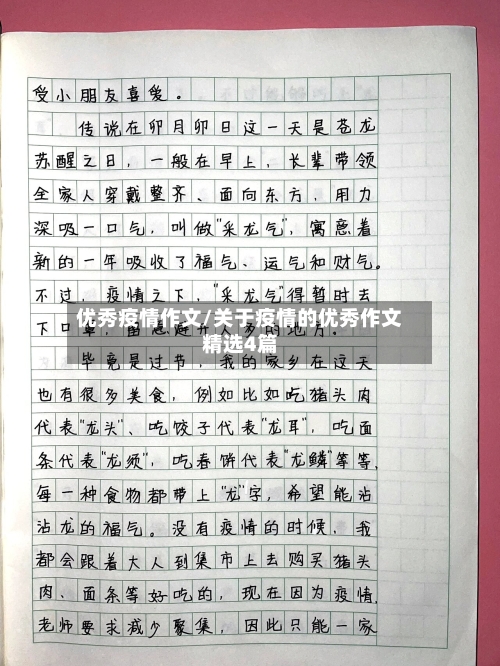 受小朋友喜爱。
传说在卯月卯日这一天是苍龙
苏醒之日，一般在早上，长辈带领
全家人穿戴整齐、面向东方，用力
深吸一口气，叫做“采龙气”，寓意着
新的一年吸收了福气、运气和财气。
不过，疫情之下，“采龙气”得暂时去
下口罩，留意避开人多的地方。
优秀疫情作文/关于疫情的优秀作文
精选4篇
毕竟是过节，我的家乡在这天
也有很多美食，例如比如吃猪头肉
代表“龙头”、吃饺子代表“龙耳”，吃面
条代表“龙须”，吃春饼代表“龙鳞”等等，
每一种食物都带上“龙”字，希望能沾
沾龙的福气。没有疫情的时候，我
都会跟着大人到集市上去购买猪头
肉、面条等好吃的，现在因为疫情，
老师要求减少聚集，因此只能一家